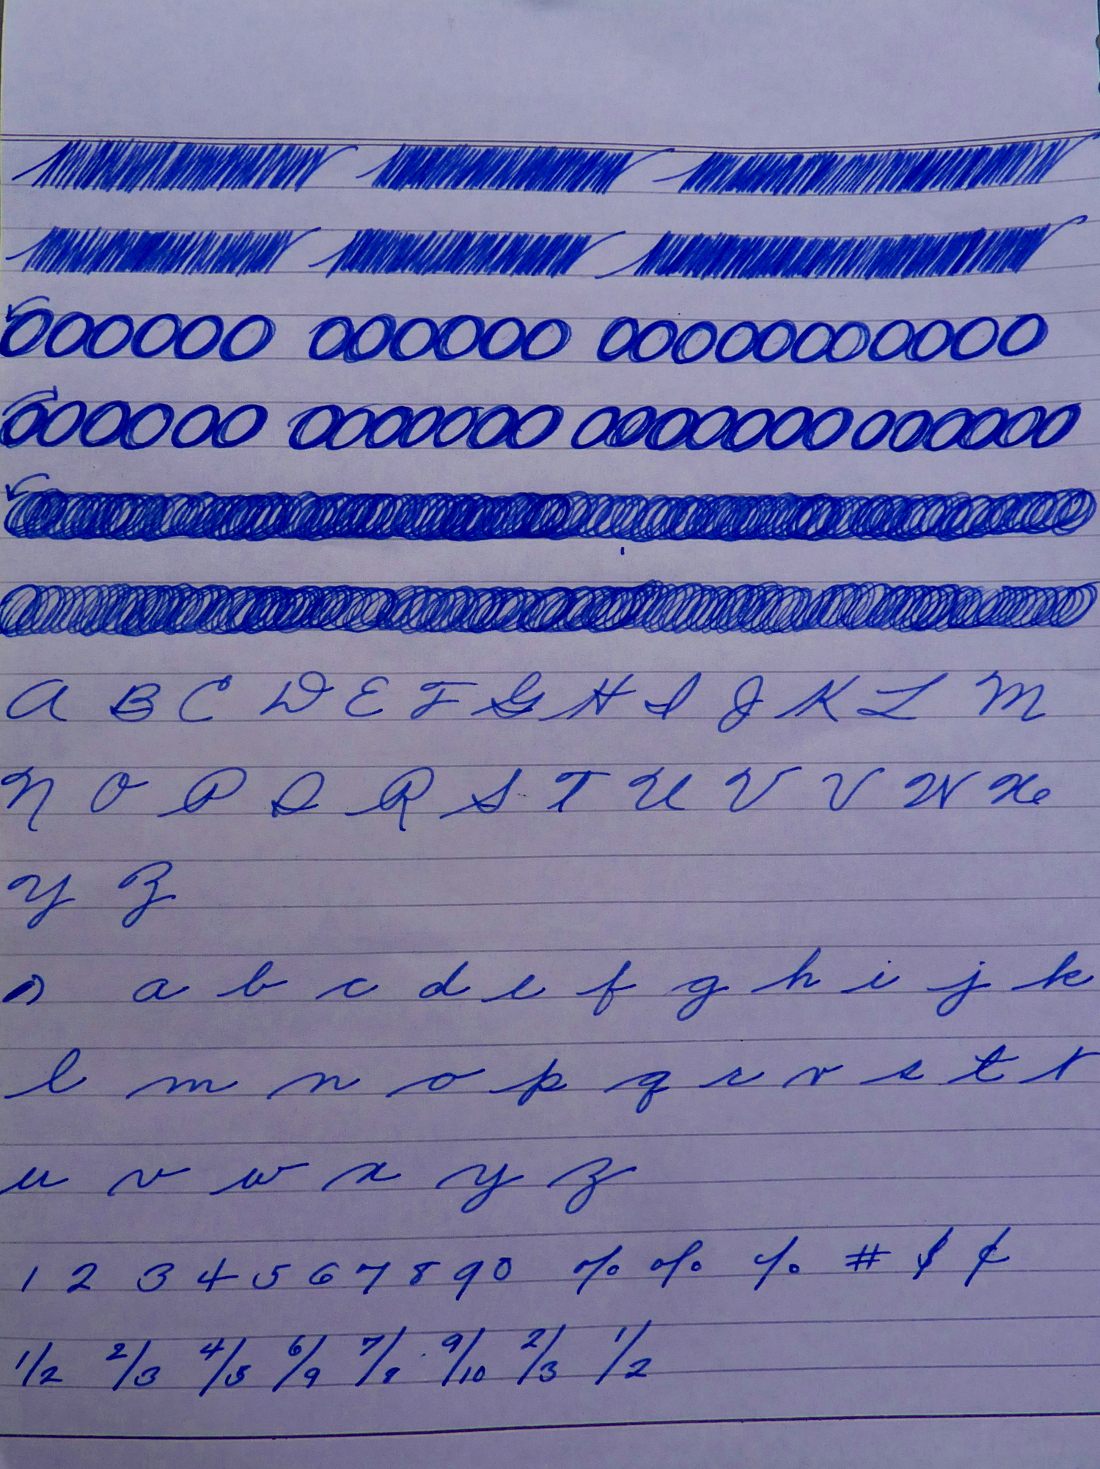 A B C D E F G H I J K L M
N O P Q R S T U V V W X
Y Z
a b c d e f g h i j k
l m n o p q r r s t t
u v w x y z
1 2 3 4 5 6 7 8 9 0 % % % # $ ¢
1/2 2/3 4/5 6/9 7/8 9/10 2/3 1/2